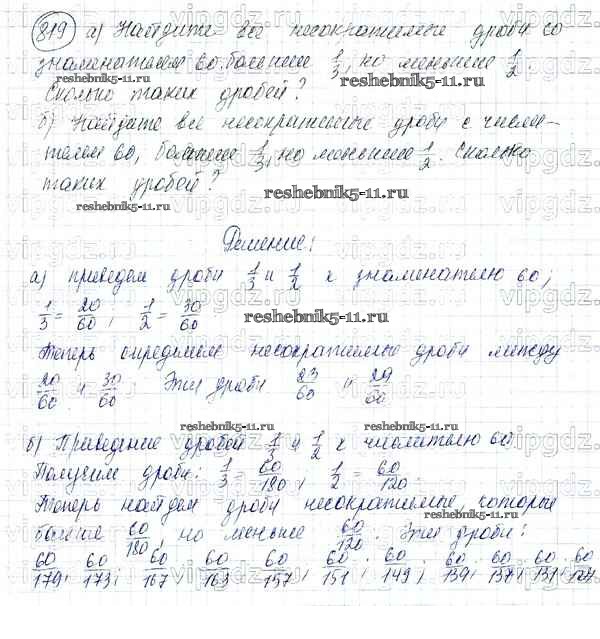 819 а) Найдите все несократимые дроби со
знаменателем 60, большие 1/3, но меньшие 1/2.
Сколько таких дробей?
б) Найдите все несократимые дроби с числи-
телем 60, большие 1/3, но меньшие 1/2. Сколько
таких дробей?
reshebnik5-11.ru
Решение:
а) приведем дроби 1/3 и 1/2 к знаменателю 60;
1/3 = 20/60; 1/2 = 30/60
reshebnik5-11.ru
Теперь определим несократимые дроби между
20/60 и 30/60. Эти дроби 23/60 и 29/60
reshebnik5-11.ru
б) Приведение дробей 1/3 и 1/2 к числителю 60.
Получим дроби: 1/3 = 60/180; 1/2 = 60/120.
reshebnik5-11.ru
Теперь найдем дроби несократимые, которые
больше 60/180, но меньше 60/120. Эти дроби:
60/179; 60/173; 60/167; 60/163; 60/157; 60/151; 60/149; 60/139; 60/137; 60/131; 60/127